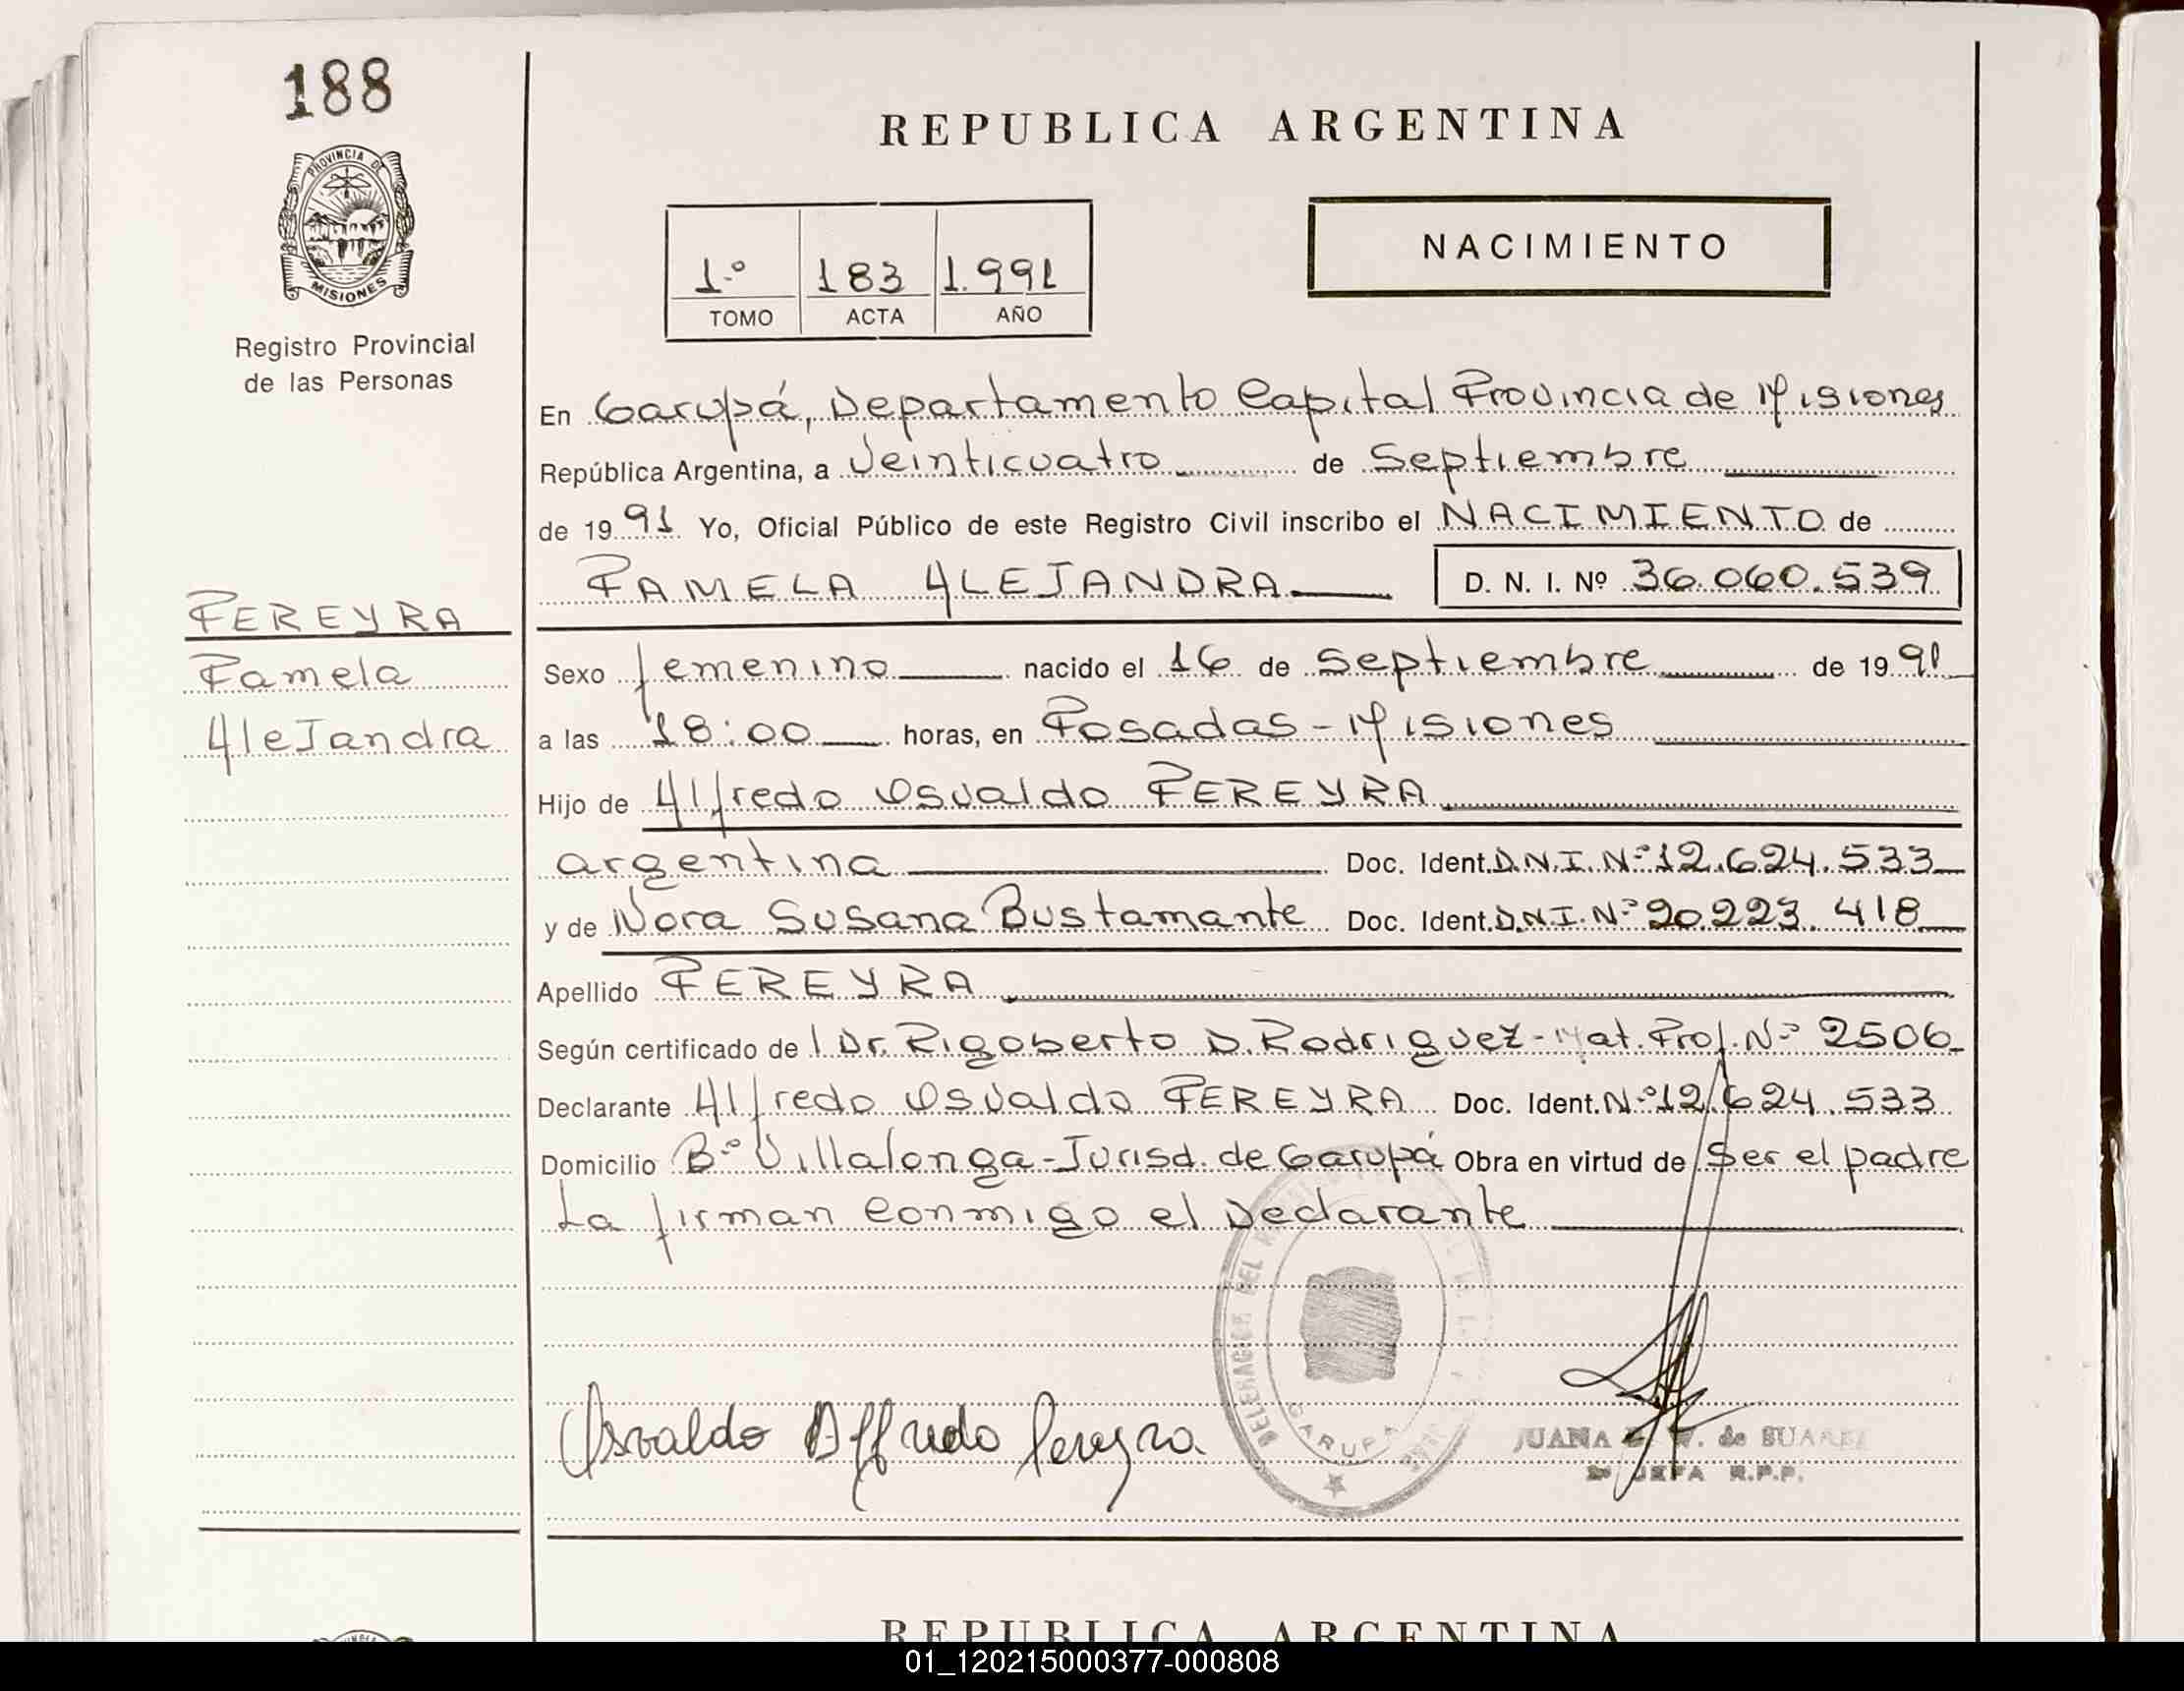 188
PROVINCIA DE
MISIONES
Registro Provincial
de las Personas
REPUBLICA ARGENTINA
1º 183 1.991
TOMO ACTA AÑO
NACIMIENTO
En Garupá, Departamento Capital Provincia de Misiones
República Argentina, a Veinticuatro de Septiembre
de 1991 Yo, Oficial Público de este Registro Civil inscribo el NACIMIENTO de
PAMELA ALEJANDRA D. N. I. Nº 36.060.539
PEREYRA
Pamela
Alejandra
Sexo femenino nacido el 16 de Septiembre de 1991
a las 18:00 horas, en Posadas - Misiones
Hijo de Alfredo Osvaldo PEREYRA
argentina Doc. Ident. D.N.I. Nº 12.624.533
y de Nora Susana Bustamante Doc. Ident. D.N.I. Nº 20.223.418
Apellido PEREYRA
Según certificado de l Dr. Rigoberto D. Rodriguez - Mat. Prof. Nº 2506
Declarante Alfredo Osvaldo PEREYRA Doc. Ident. Nº 12.624.533
Domicilio Bº Villalonga - Jurisd. de Garupá Obra en virtud de Ser el padre
La firman Conmigo el Declarante
Osvaldo Alfredo Pereyra
DELEGACION DEL
GARUPA
JUANA de SUAREZ
JEFA R.P.P.
REPUBLICA ARGENTINA
01_120215000377-000808